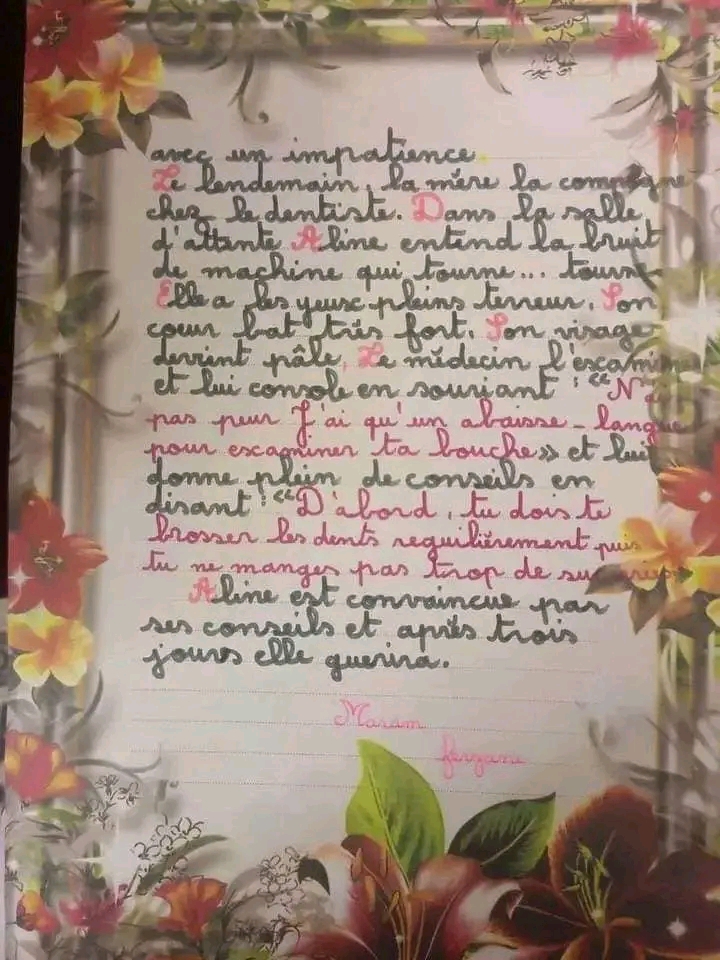 avec un impatience.
Le lendemain, la mère la compagne
chez le dentiste. Dans la salle
d'attente Aline entend la bruit
de machine qui tourne... tourne
Elle a les yeux pleins terreur. Son
cœur bat très fort. Son visage
devint pâle. Le médecin l'examine
et lui console en souriant : "N'ai
pas peur J'ai qu'un abaisse-langue
pour examiner ta bouche» et lui
donne plein de conseils en
disant : "D'abord, tu dois te
brosser les dents reguilièrement puis
tu ne manges pas trop de sucreries
Aline est convaincue par
ses conseils et après trois
jours elle guerira.
Maram
ferzane